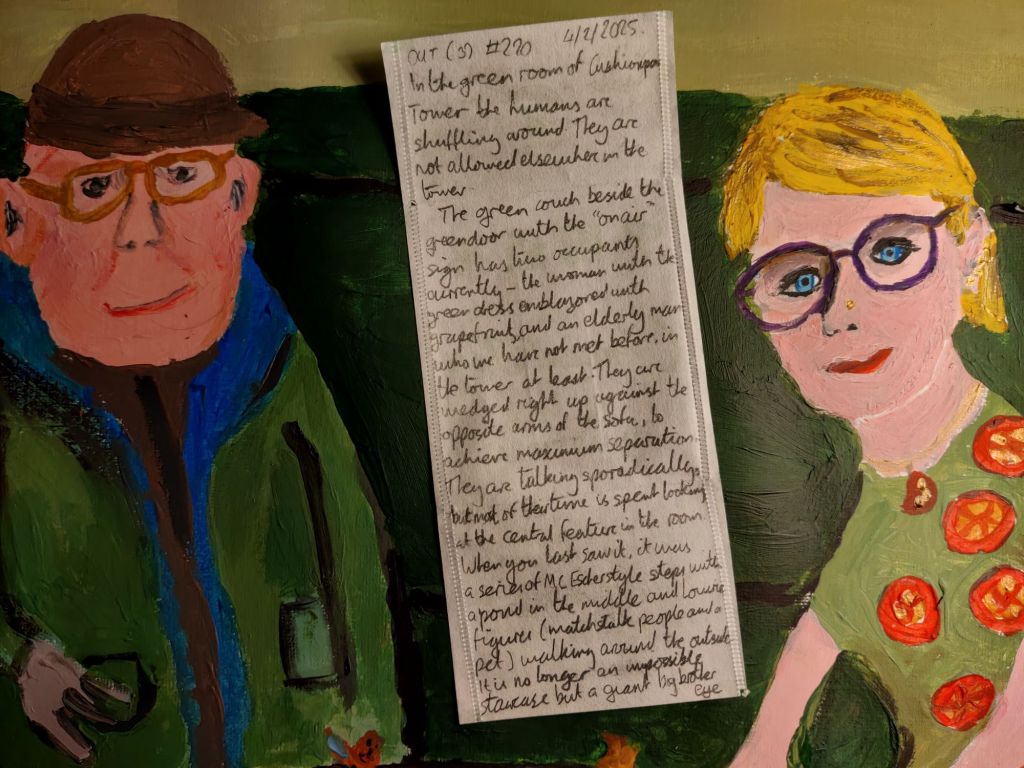 OUT (S) #270 4/2/2025.
In the green room of Cushionpon
Tower the humans are
shuffling around. They are
not allowed elsewher in the
tower
The green couch beside the
greendoor with the "on air"
sign has two occupants
currently – the woman with the
green dress emblazoned with
grapefruit, and an elderly man
who we have not met before, in
the tower at least. They are
wedged right up against the
opposite arms of the sofa, to
achieve maximum separation.
They are talking sporadically,
but most of their time is spent looking
at the central feature in the room.
When you last saw it, it was
a series of M.C Escher style steps with
a pond in the middle and
figures (matchstalk people and a
pet) walking around the outside
It is no longer an impossible
staircase but a giant big brother
eye